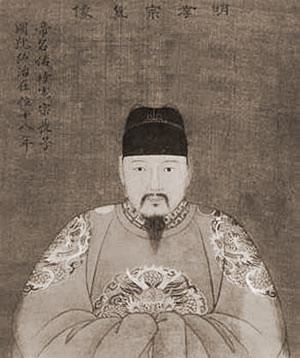 明孝宗皇像
帝名佑樘憲宗長子
國號弘治在位十八年